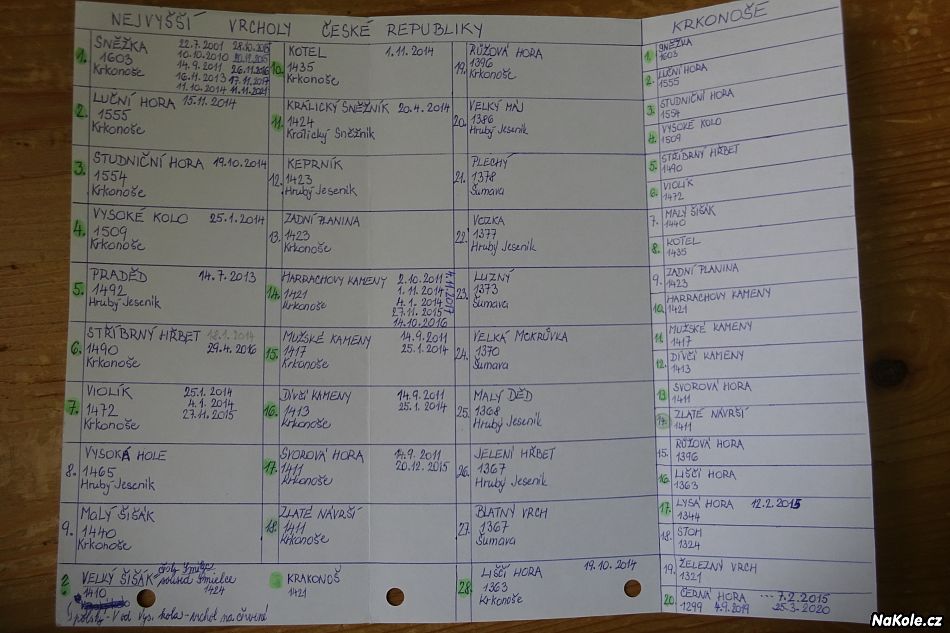 NEJVYŠŠÍ VRCHOLY ČESKÉ REPUBLIKY
1. SNĚŽKA 22.7.2001 28.10.2015
1603 10.10.2010
Krkonoše 14.9.2011 26.11.2016
16.11.2013 17.11.2017
11.10.2014 11.11.2021
2. LUČNÍ HORA 15.11.2014
1555
Krkonoše
3. STUDNIČNÍ HORA 19.10.2014
1554
Krkonoše
4. VYSOKÉ KOLO 25.1.2014
1509
Krkonoše
5. PRADĚD 14.7.2013
1492
Hrubý Jeseník
6. STŘÍBRNÝ HŘBET 18.1.2014
1490 29.4.2016
Krkonoše
7. VIOLÍK 25.1.2014
1472 4.1.2014
Krkonoše 27.11.2015
8. VYSOKÁ HOLE
1465
Hrubý Jeseník
9. MALÝ ŠIŠÁK
1440
Krkonoše
? VELKÝ ŠIŠÁK
1410
Smielce
1424
V od Vys. kola - vrchol na červené
10. KOTEL 1.11.2014
1435
Krkonoše
11. KRALICKÝ SNĚŽNÍK 20.4.2014
1424
Kralický Sněžník
12. KEPRNÍK
1423
Hrubý Jeseník
13. ZADNÍ PLANINA
1423
Krkonoše
14. HARRACHOVY KAMENY 2.10.2011 4.11.2017
1421 1.11.2014
Krkonoše 4.1.2014
27.11.2015
14.10.2016
15. MUŽSKÉ KAMENY 14.9.2011
1417 25.1.2014
Krkonoše
16. DÍVČÍ KAMENY 14.9.2011
1413 25.1.2014
Krkonoše
17. SVOROVÁ HORA 14.9.2011
1411 20.12.2015
Krkonoše
18. ZLATÉ NÁVRŠÍ
1411
Krkonoše
KRAKONOŠ
1421
19. RŮŽOVÁ HORA
1396
Krkonoše
20. VELKÝ MÁJ
1386
Hrubý Jeseník
21. PLECHÝ
1378
Šumava
22. VOZKA
1377
Hrubý Jeseník
23. LUZNÝ
1373
Šumava
24. VELKÁ MOKRŮVKA
1370
Šumava
25. MALÝ DĚD
1368
Hrubý Jeseník
26. JELENÍ HŘBET
1367
Hrubý Jeseník
27. BLATNÝ VRCH
1367
Šumava
28. LIŠČÍ HORA 19.10.2014
1363
Krkonoše
KRKONOŠE
1. SNĚŽKA
1603
2. LUČNÍ HORA
1555
3. STUDNIČNÍ HORA
1554
4. VYSOKÉ KOLO
1509
5. STŘÍBRNÝ HŘBET
1490
6. VIOLÍK
1472
7. MALÝ ŠIŠÁK
1440
8. KOTEL
1435
9. ZADNÍ PLANINA
1423
10. HARRACHOVY KAMENY
1421
11. MUŽSKÉ KAMENY
1417
12. DÍVČÍ KAMENY
1413
13. SVOROVÁ HORA
1411
14. ZLATÉ NÁVRŠÍ
1411
15. RŮŽOVÁ HORA
1396
16. LIŠČÍ HORA
1363
17. LYSÁ HORA 12.2.2015
1344
18. STOH
1324
19. ŽELEZNÝ VRCH
1321
20. ČERNÁ HORA ... 7.2.2015
1299 4.9.2019 25.3.2020
NaKole.cz